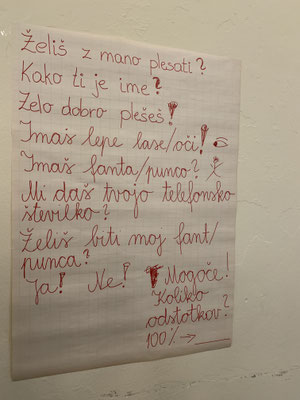 Želiš z mano plesati?
Kako ti je ime?
Zelo dobro plešeš!
Imaš lepe lase/oči!
Imaš fanta/punco?
Mi daš tvojo telefonsko
številko?
Želiš biti moj fant/
punca?
Ja! Ne! Mogoče!
Koliko
odstotkov?
100% →